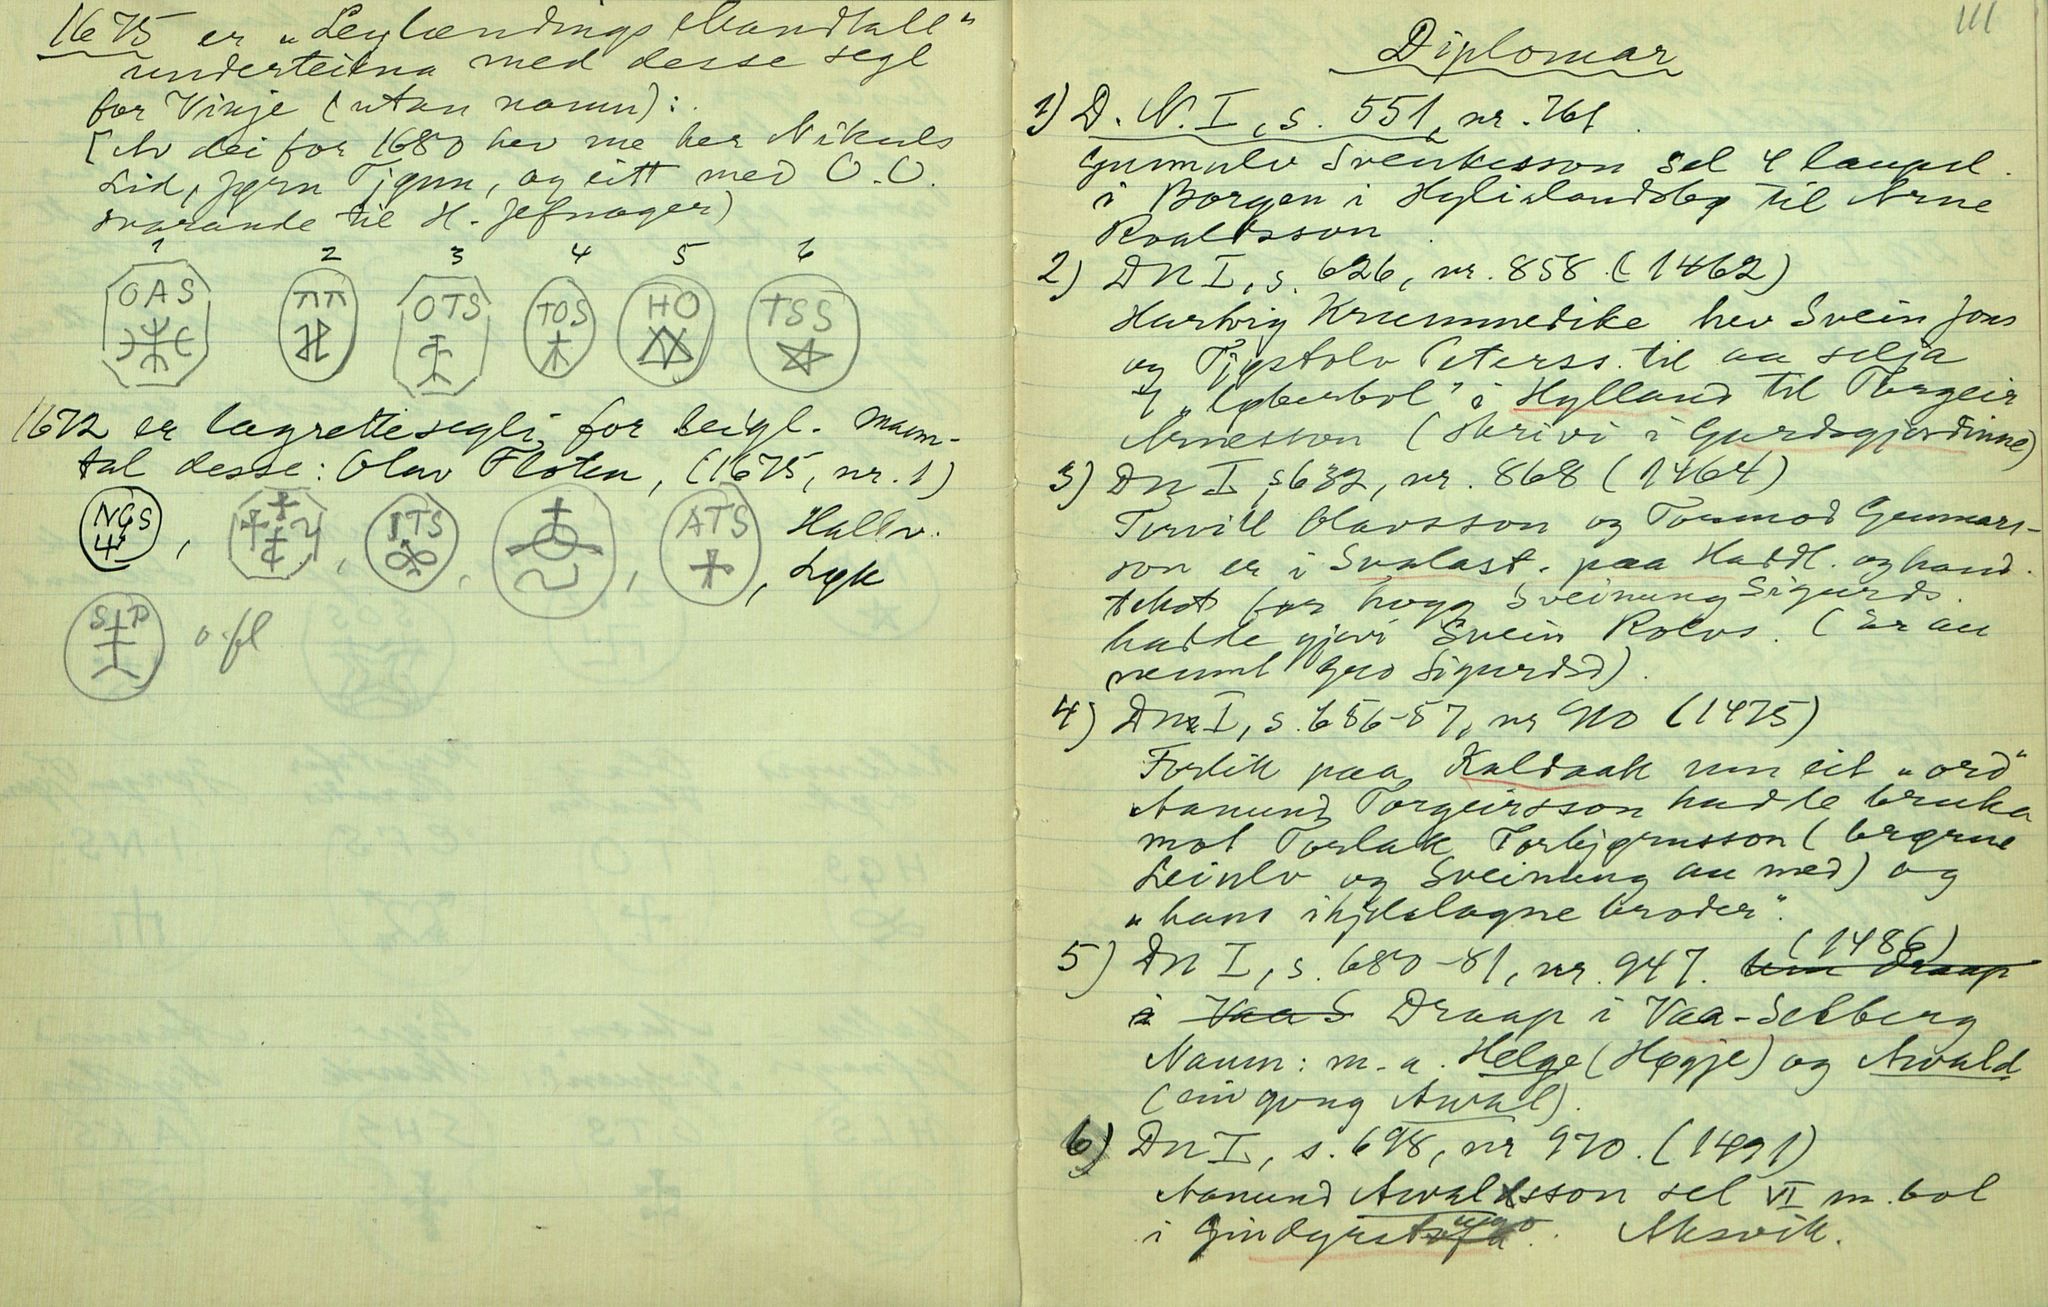 1675 er "Leylændings Mandtall"
underteikna med desse segl
for Vinje (utan namn):
[Av dei for 1680 hev me her Nikuls
Lid, Jørn Tjønn, og eitt med O.O.
svarande til H. Jefnager)
1 2 3 4 5 6
OAS ΠΠ OTS TOS HO TSS
1672 er lagrettesegli for leigl. mann-
tal desse: Olav Flaten, (1675, nr. 1)
NGS, , ITS, , ATS, Hallv.
Løk
SP o.fl
111
Diplomar
1) D.N. I, s. 551, nr. 761.
Gunnulv Sveinkesson sel 4 laupsl.
i Borgen i Hylislandsbø til Arne
Roaldsson.
2) DN I, s. 626, nr. 858. (1462)
Hartvig Krummedike hev Svein Jons
og Tjøstolv Peterss. til aa selja
4 "løberbol" i Hylland til Torgeir
Arnesson (skrivi i Gardsgjordinne)
3) DN I, s 632, nr. 868 (1464)
Torvill Olavsson og Tormod Gunnars-
son er i Svalast. paa Haddl. og hand-
tekot for hogg Sveinung Sigurds.
hadde gjevi Svein Rolvs. (Er au
nemnt Gro Sigurdsd).
4) DN I, s. 656-57, nr 910 (1475)
Forlik paa Kaldaak um eit "ord"
Aanund Torgeirsson hadde bruka
mot Torlak Torbjørnsson (brørne
Leiulv og Sveinung au med) og
"hans ihjelslagne broder".
5) DN I, s. 680-81, nr. 947. (1486) um Draap
i Vaa S Draap i Vaa-Selberg
Namn: m.a. Helge (Høgje) og Avald
(ein gong Awal).
6) DN I, s. 698, nr 970. (1491)
Aanund Awaldsson sel VI m. bol
i Aksvik.